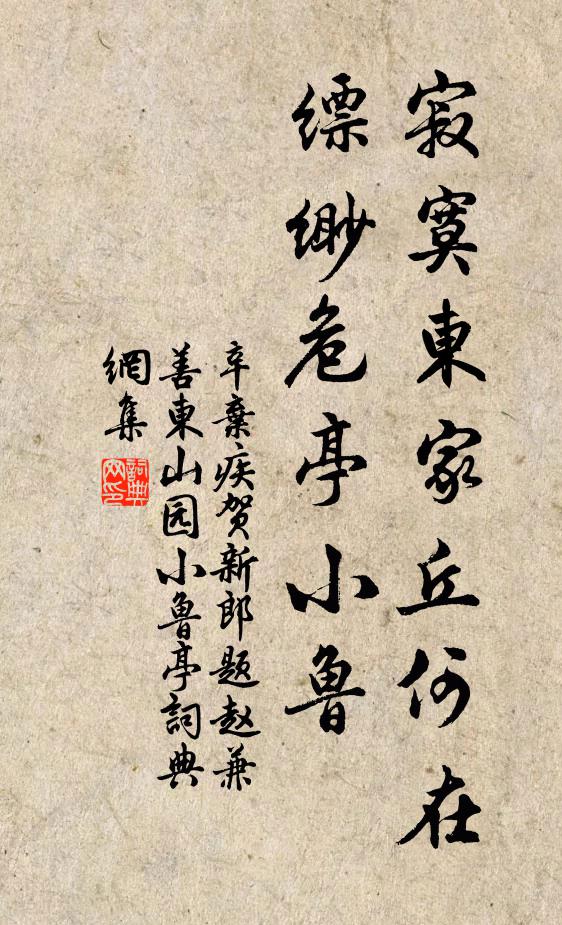 寂寞東家丘何在
縹緲危亭小魯
辛棄疾贺新郎题赵兼
善東山园小魯亭詞典
網集
詞典
网印